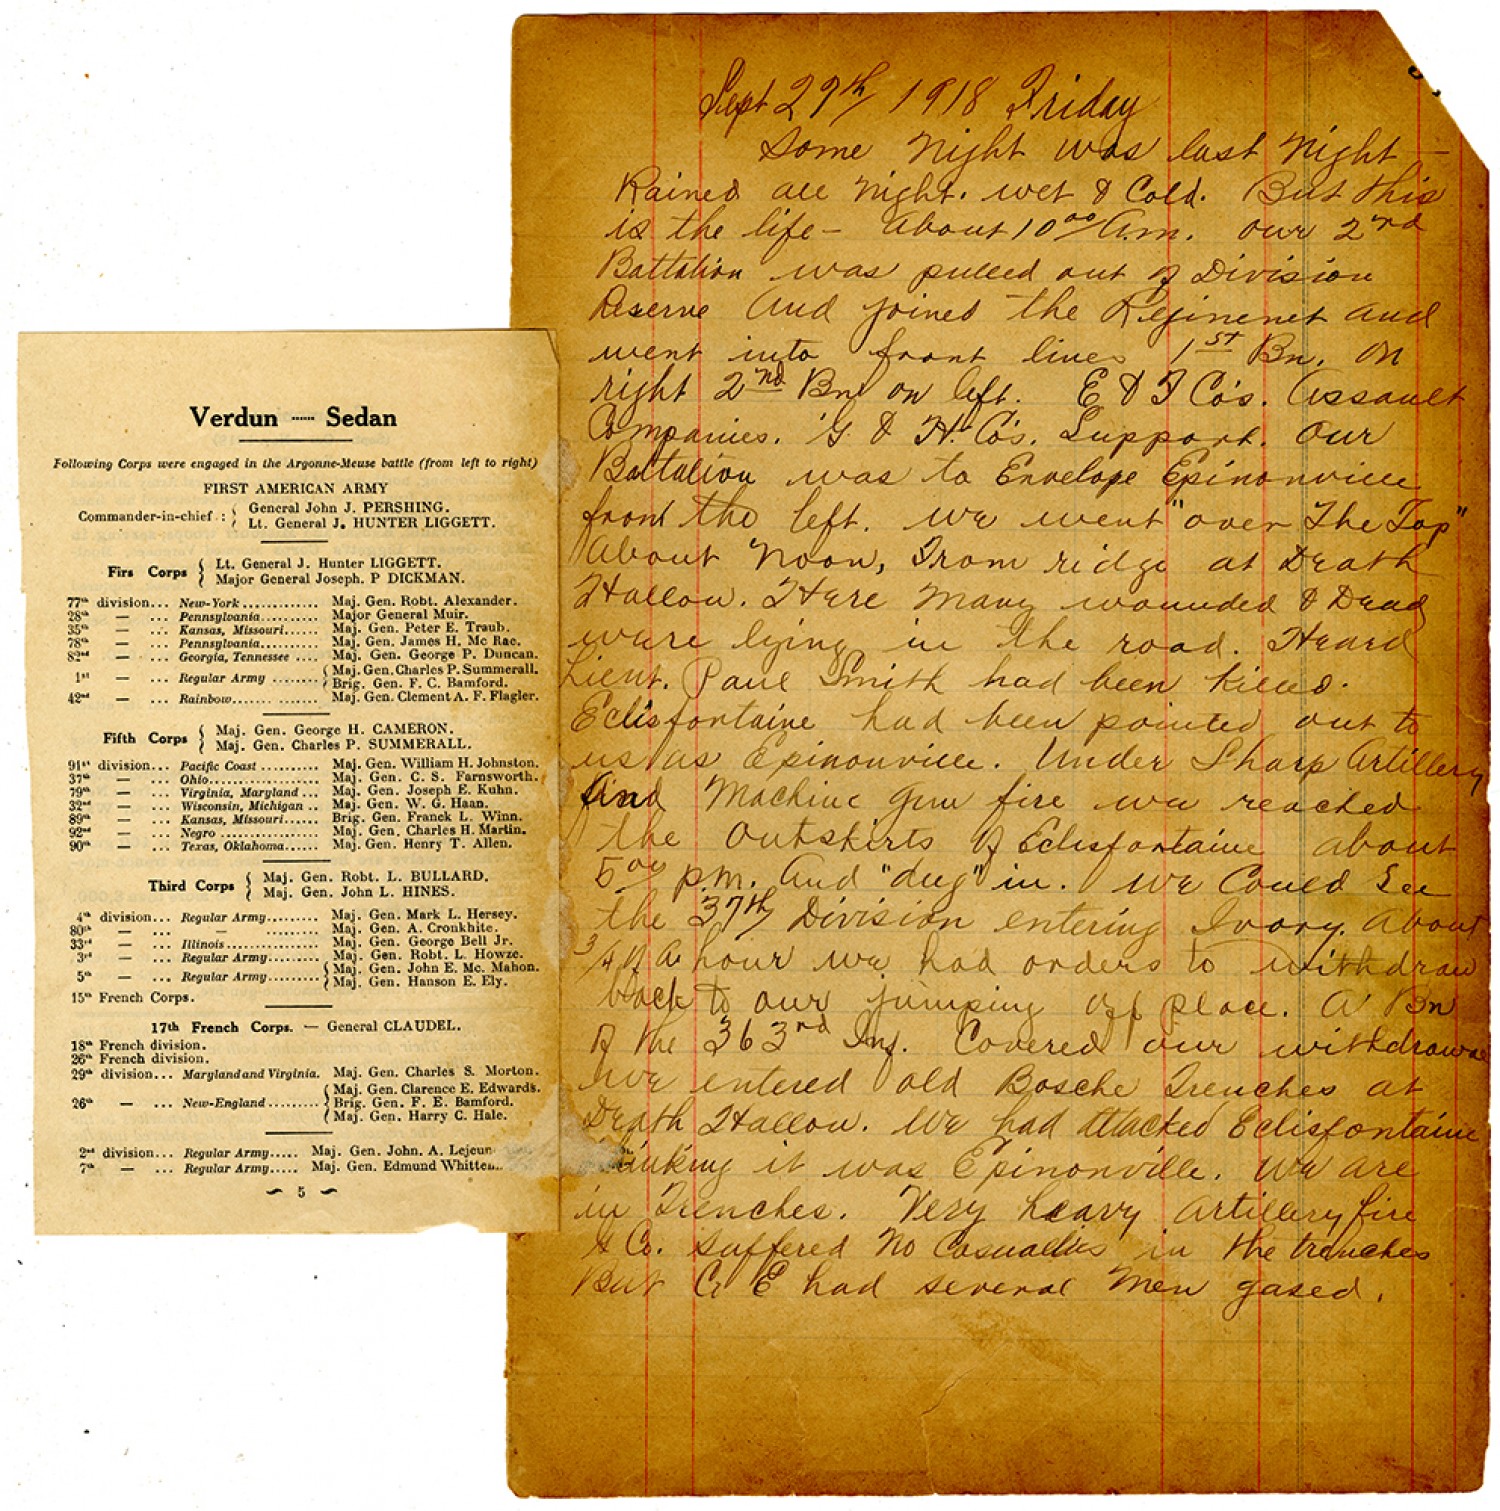 Verdun ······ Sedan
Following Corps were engaged in the Argonne-Meuse battle (from left to right)
FIRST AMERICAN ARMY
Commander-in-chief : { General John J. PERSHING.
Lt. General J. HUNTER LIGGETT.
Firs Corps { Lt. General J. Hunter LIGGETT.
Major General Joseph. P DICKMAN.
77th division... New-York ............. Maj. Gen. Robt. Alexander.
28th — ... Pennsylvania .......... Major General Muir.
35th — ... Kansas, Missouri...... Maj. Gen. Peter E. Traub.
78th — ... Pennsylvania.......... Maj. Gen. James H. Mc Rae.
82nd — ... Georgia, Tennessee .... Maj. Gen. George P. Duncan.
1st — ... Regular Army ........ { Maj. Gen. Charles P. Summerall.
Brig. Gen. F. C. Bamford.
42nd — ... Rainbow....... ....... Maj. Gen. Clement A. F. Flagler.
Fifth Corps { Maj. Gen. George H. CAMERON.
Maj. Gen. Charles P. SUMMERALL.
91st division... Pacific Coast .......... Maj. Gen. William H. Johnston.
37th — ... Ohio.................. Maj. Gen. C. S. Farnsworth.
79th — ... Virginia, Maryland ... Maj. Gen. Joseph E. Kuhn.
32nd — ... Wisconsin, Michigan .. Maj. Gen. W. G. Haan.
89th — ... Kansas, Missouri...... Brig. Gen. Franck L. Winn.
92nd — ... Negro ................ Maj. Gen. Charles H. Martin.
90th — ... Texas, Oklahoma...... Maj. Gen. Henry T. Allen.
Third Corps { Maj. Gen. Robt. L. BULLARD.
Maj. Gen. John L. HINES.
4th division... Regular Army......... Maj. Gen. Mark L. Hersey.
80th — ... — ......... Maj. Gen. A. Cronkhite.
33rd — ... Illinois................ Maj. Gen. George Bell Jr.
3rd — ... Regular Army......... Maj. Gen. Robt. L. Howze.
5th — ... Regular Army......... { Maj. Gen. John E. Mc. Mahon.
Maj. Gen. Hanson E. Ely.
15th French Corps.
17th French Corps. — General CLAUDEL.
18th French division.
26th French division.
29th division... Maryland and Virginia. Maj. Gen. Charles S. Morton.
26th — ... New-England ......... { Maj. Gen. Clarence E. Edwards.
Brig. Gen. F. E. Bamford.
Maj. Gen. Harry C. Hale.
2nd division... Regular Army..... Maj. Gen. John. A. Lejeun
7th — ... Regular Army..... Maj. Gen. Edmund Whitten...
5
Sept 27th/ 1918 Friday
Some Night was last Night —
Rained all Night. wet & Cold. But this
is the life — About 10 00/ A.m. our 2nd
Battalion was pulled out of Division
Reserve And joined the Regiment and
went into front lines 1st Bn. on
right 2nd Bn on left. E & F Co's. Assault
Companies. G. & H. Co's. Support. Our
Battalion was to Envelope Epinonville
from the left. We went "over The Top"
About Noon, From ridge at Death
Hallow. Here Many wounded & Dead
were lying in the road. Heard
Lieut. Paul Smith had been Killed.
Eclisfontaine had been pointed out to
us as Epinonville. Under Sharp Artillery
And Machine gun fire we reached
the Outskirts of Eclisfontaine about
5 00/ p.m. And "dug" in. We Could See
the 37th/ Division entering Ivory. About
3/4 of A hour we had orders to withdraw
back to our jumping off place. A Bn
of the 363rd Inf. Covered our withdrawal
We entered old Bosche Trenches at
Death Hallow. We had attacked Eclisfontaine
thinking it was Epinonville. We Are
in Trenches. Very heavy Artillery fire
G Co. Suffered No Casualties in the trenches
But Co E had several Men gased.